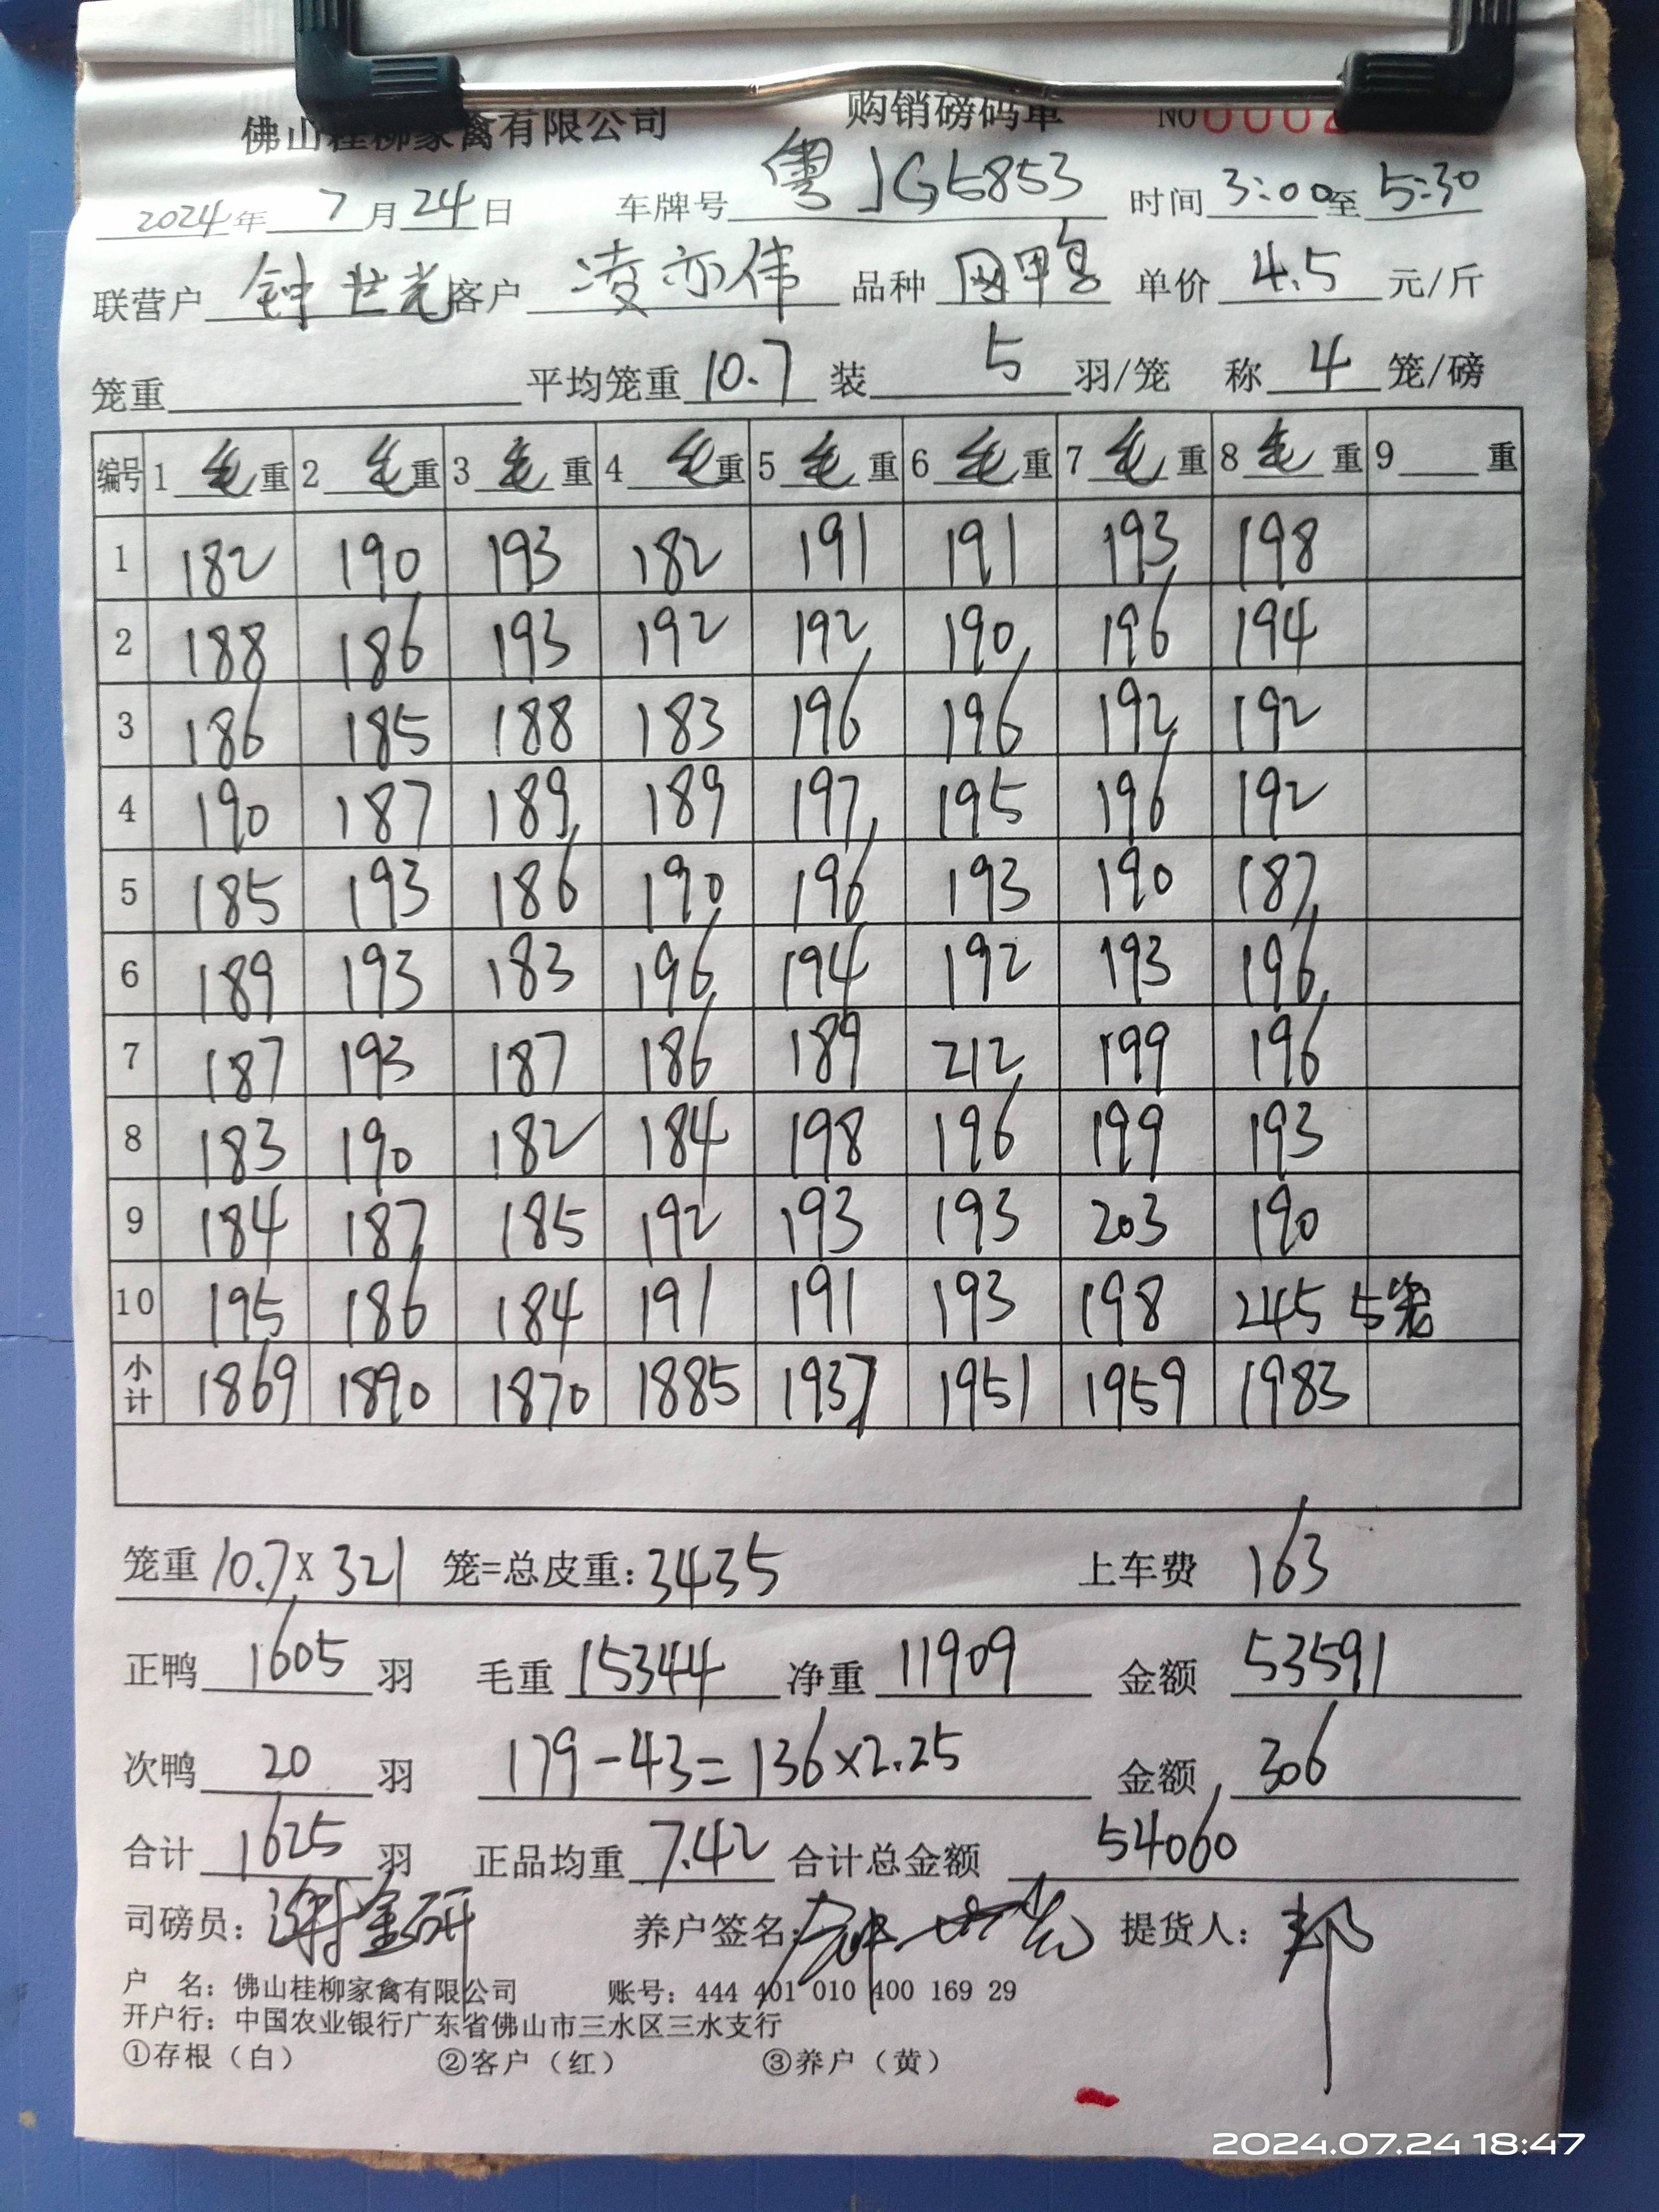 佛山桂柳家禽有限公司 购销磅码单 NO 0002
2024年 7月24日 车牌号 粤JG5853 时间 3:00至5:30
联营户 钟世光 客户 凌亦伟 品种 网鸭 单价 4.5 元/斤
笼重 平均笼重 10.7 装 5 羽/笼 称 4 笼/磅
编号 1 毛重 2 毛重 3 毛重 4 毛重 5 毛重 6 毛重 7 毛重 8 毛重 9 重
1 182 190 193 182 191 191 193 198
2 188 186 193 192 192 190 196 194
3 186 185 188 183 196 196 192 192
4 190 187 189 189 197 195 196 192
5 185 193 186 190 196 193 190 187
6 189 193 183 196 194 192 193 196
7 187 193 187 186 189 212 199 196
8 183 190 182 184 198 196 199 193
9 184 187 185 192 193 193 203 190
10 195 186 184 191 191 193 198 245 5笼
小计 1869 1890 1870 1885 1937 1951 1959 1983
笼重 10.7 x 321 笼=总皮重: 3435 上车费 163
正鸭 1605 羽 毛重 15344 净重 11909 金额 53591
次鸭 20 羽 179-43=136×2.25 金额 306
合计 1625 羽 正品均重 7.42 合计总金额 54060
司磅员: 谢金研 养户签名: 钟世光 提货人: 邦
户 名: 佛山桂柳家禽有限公司 账号: 444 401 010 400 169 29
开户行: 中国农业银行广东省佛山市三水区三水支行
①存根(白) ②客户(红) ③养户(黄)
2024.07.24 18:47